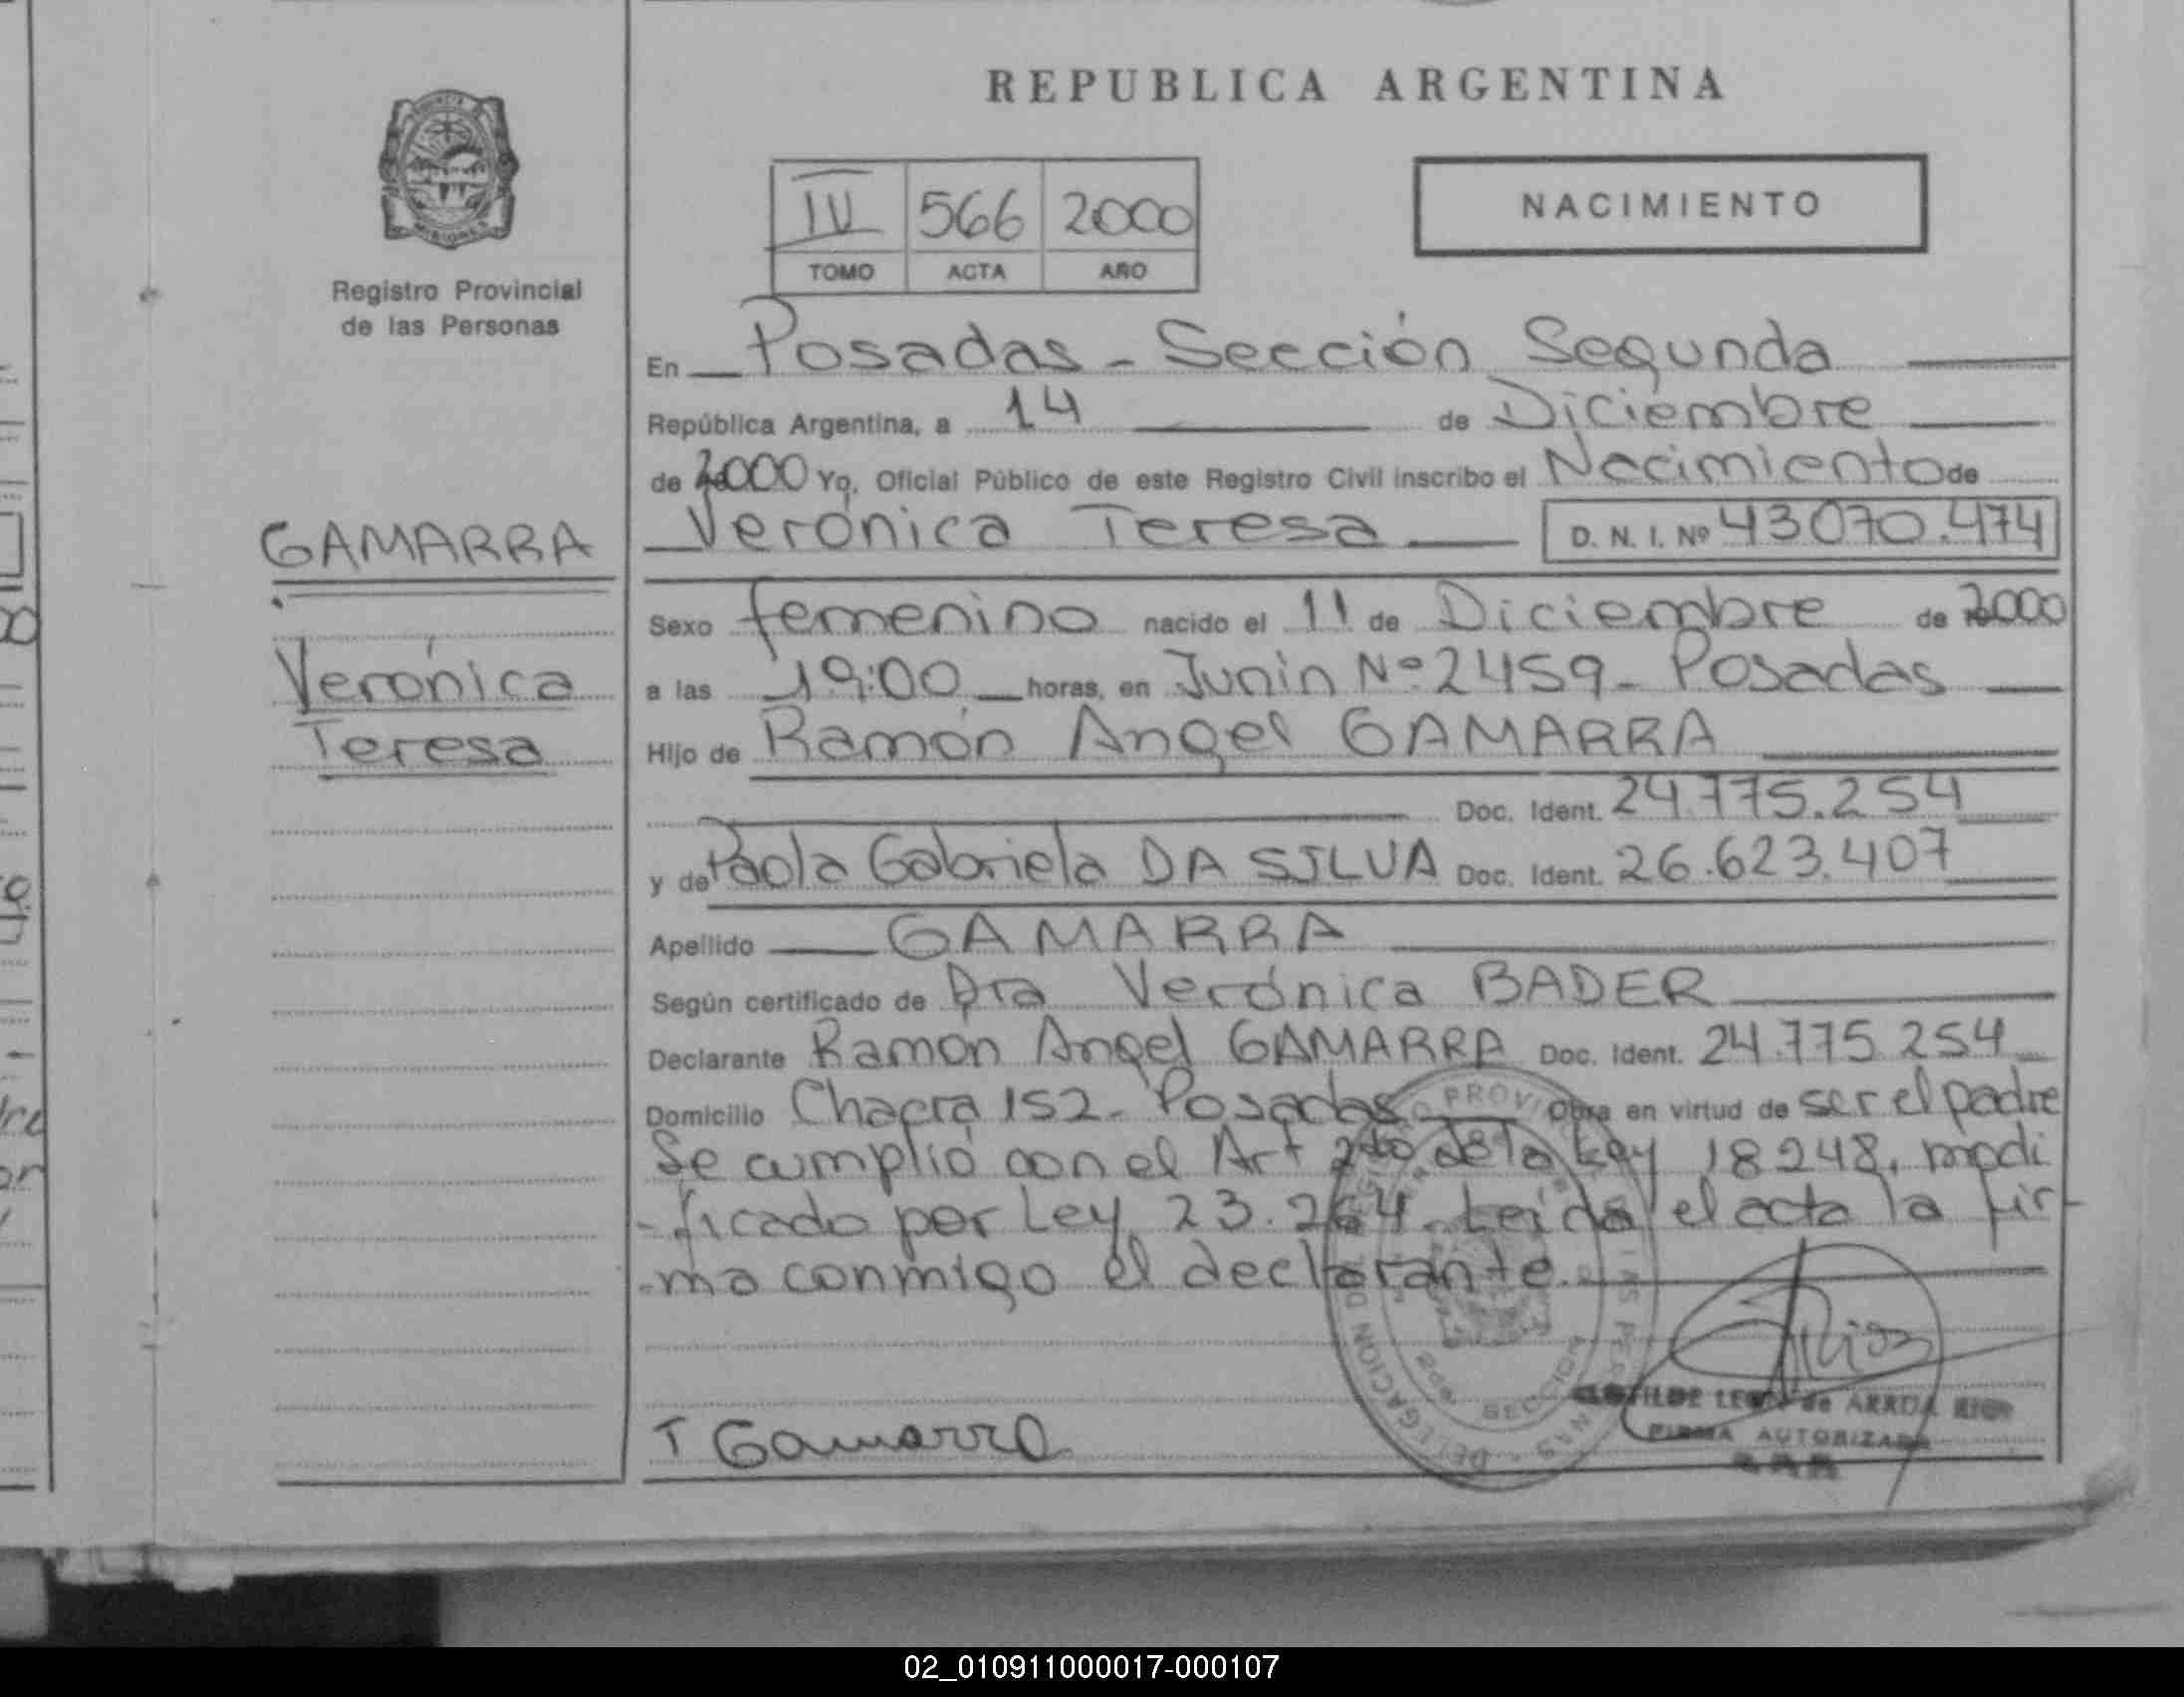 REPUBLICA ARGENTINA
IV 566 2000
TOMO ACTA AÑO
NACIMIENTO
Registro Provincial
de las Personas
GAMARRA
Verónica
Teresa
En Posadas - Sección Segunda
República Argentina, a 14 de Diciembre
de 2000 Yo, Oficial Público de este Registro Civil inscribo el Nacimiento de
Verónica Teresa D. N. I. Nº 43070.474
Sexo femenino nacido el 11 de Diciembre de 2000
a las 19:00 horas, en Junin Nº 2459 - Posadas
Hijo de Ramón Angel GAMARRA
Doc. Ident. 24.775.254
y de Paola Gabriela DA SILVA Doc. Ident. 26.623.407
Apellido GAMARRA
Según certificado de Dra Verónica BADER
Declarante Ramón Angel GAMARRA Doc. Ident. 24.775.254
Domicilio Chacra 152 - Posadas Obra en virtud de ser el padre
Se cumplió con el Art 2do de la Ley 18248, modi
-ficado por Ley 23.264. Leida el acta la fir-
-ma conmigo el declarante.
Gamarra
de ARRUA RIOS
FIRMA AUTORIZADA
02_010911000017-000107